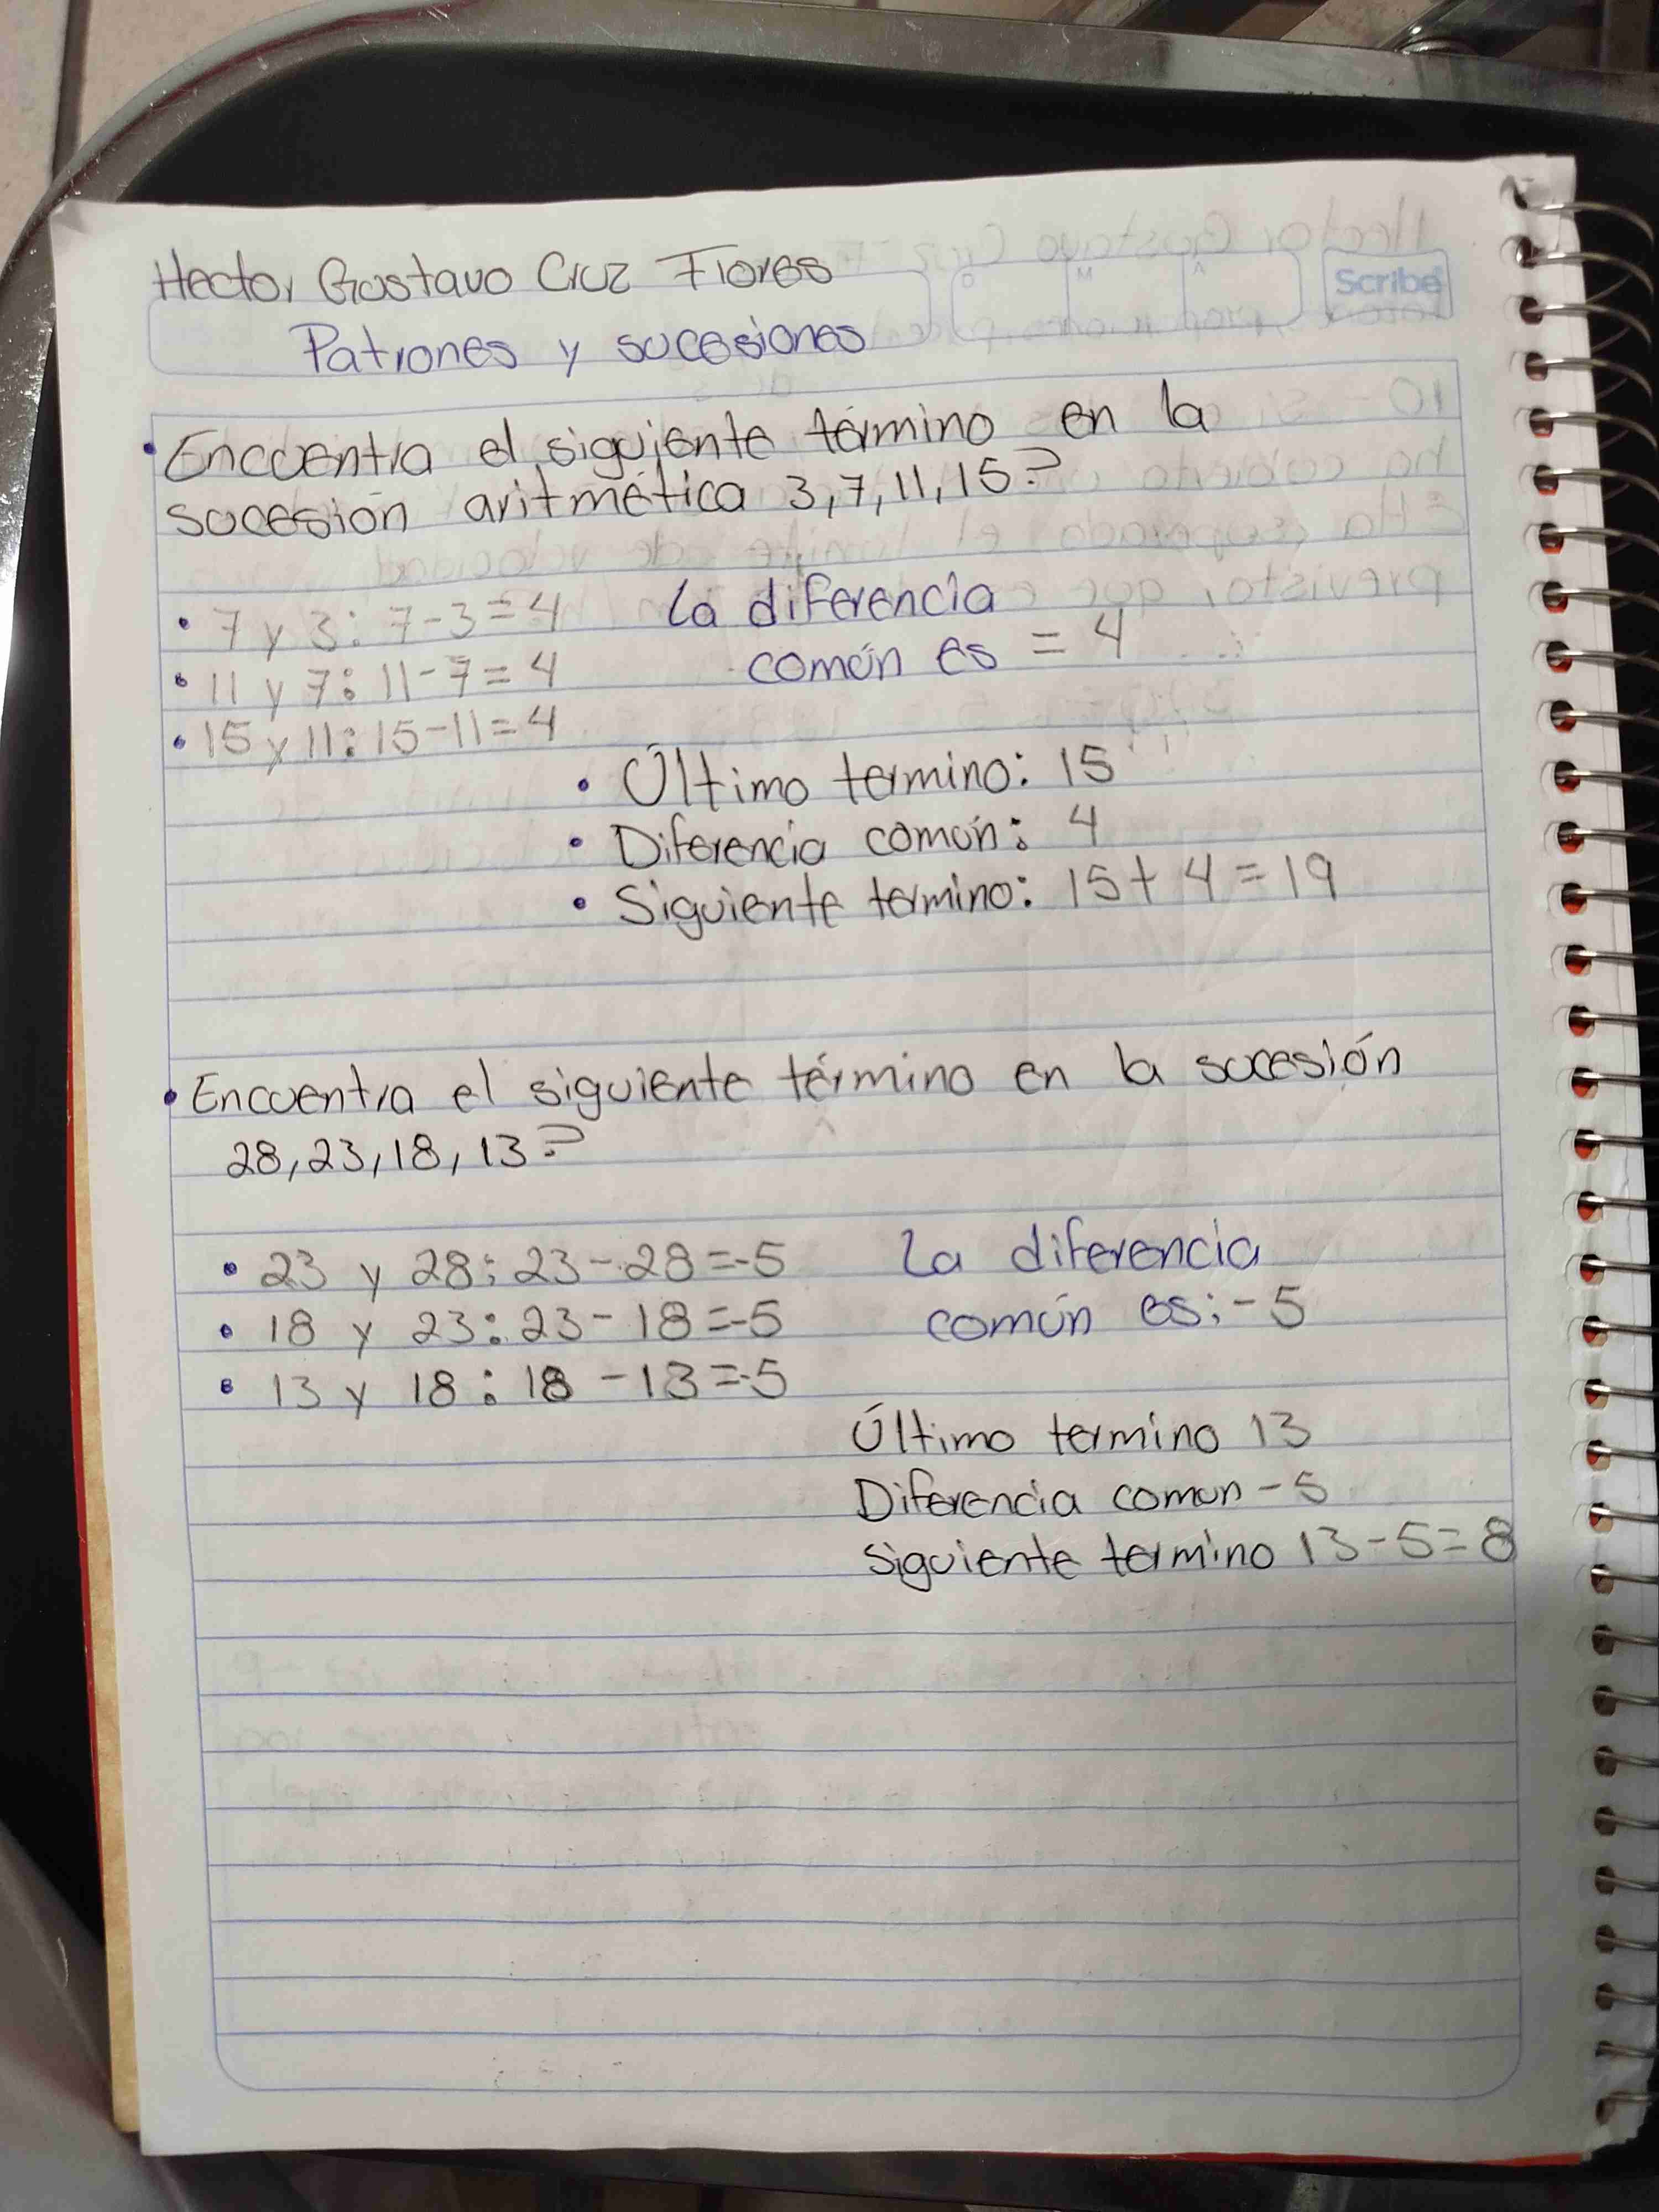 Hector Gustavo Cruz Flores
Scribe
Patrones y sucesiones
• Encuentra el siguiente término en la
sucesión aritmética 3,7,11,15?
• 7 y 3: 7-3=4
• 11 y 7: 11-7=4
• 15 y 11: 15-11=4
La diferencia
común es = 4
• Último termino: 15
• Diferencia común: 4
• Siguiente termino: 15+4=19
• Encuentra el siguiente término en la sucesión
28,23,18,13?
• 23 y 28: 23-28=-5
• 18 y 23: 23-18=-5
• 13 y 18: 18-13=-5
La diferencia
común es: -5
Último termino 13
Diferencia comun -5
Siguiente termino 13-5=8